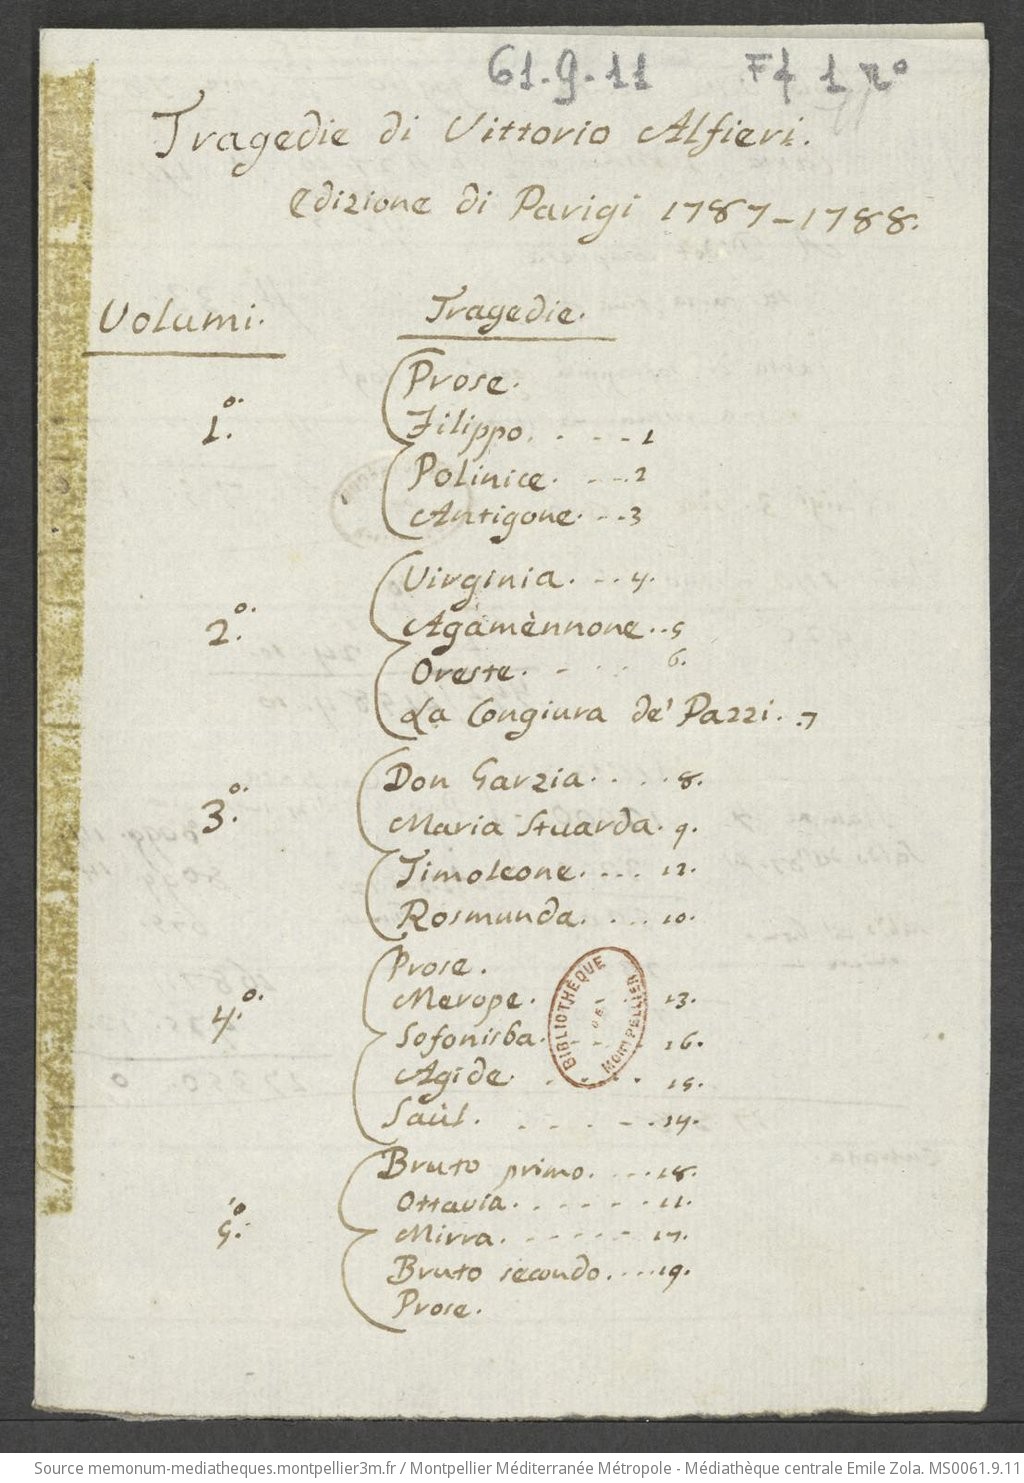 61.9.11 F4 1 ro
Tragedie di Vittorio Alfieri.
Edizione di Parigi 1787-1788.
Volumi. Tragedie.
Prose.
1.o Filippo. . . - - 1
Polinice. - - . 2
Antigone. - - 3
Virginia. - . . 4.
2.o Agamènnone. . 5
Oreste. - . . . 6.
La Congiura de' Pazzi. . 7
Don Garzia. . . . . 8.
3.o Maria Stuarda. 9.
Timoleone. . . . 12.
Rosmunda. . . . 10.
Prose.
4.o Merope. - 13.
Sofonisba. - - 16.
Agide. . . . . 15.
Saùl. . . . . - . 14.
Bruto primo. . . . 18.
Ottavia. . . . . . . 11.
5.o Mirra. - - - - - 17.
Bruto secondo. . . . 19.
Prose.
BIBLIOTHÈQUE DE MONTPELLIER
Source memonum-mediatheques.montpellier3m.fr / Montpellier Méditerranée Métropole - Médiathèque centrale Emile Zola. MS0061.9.11